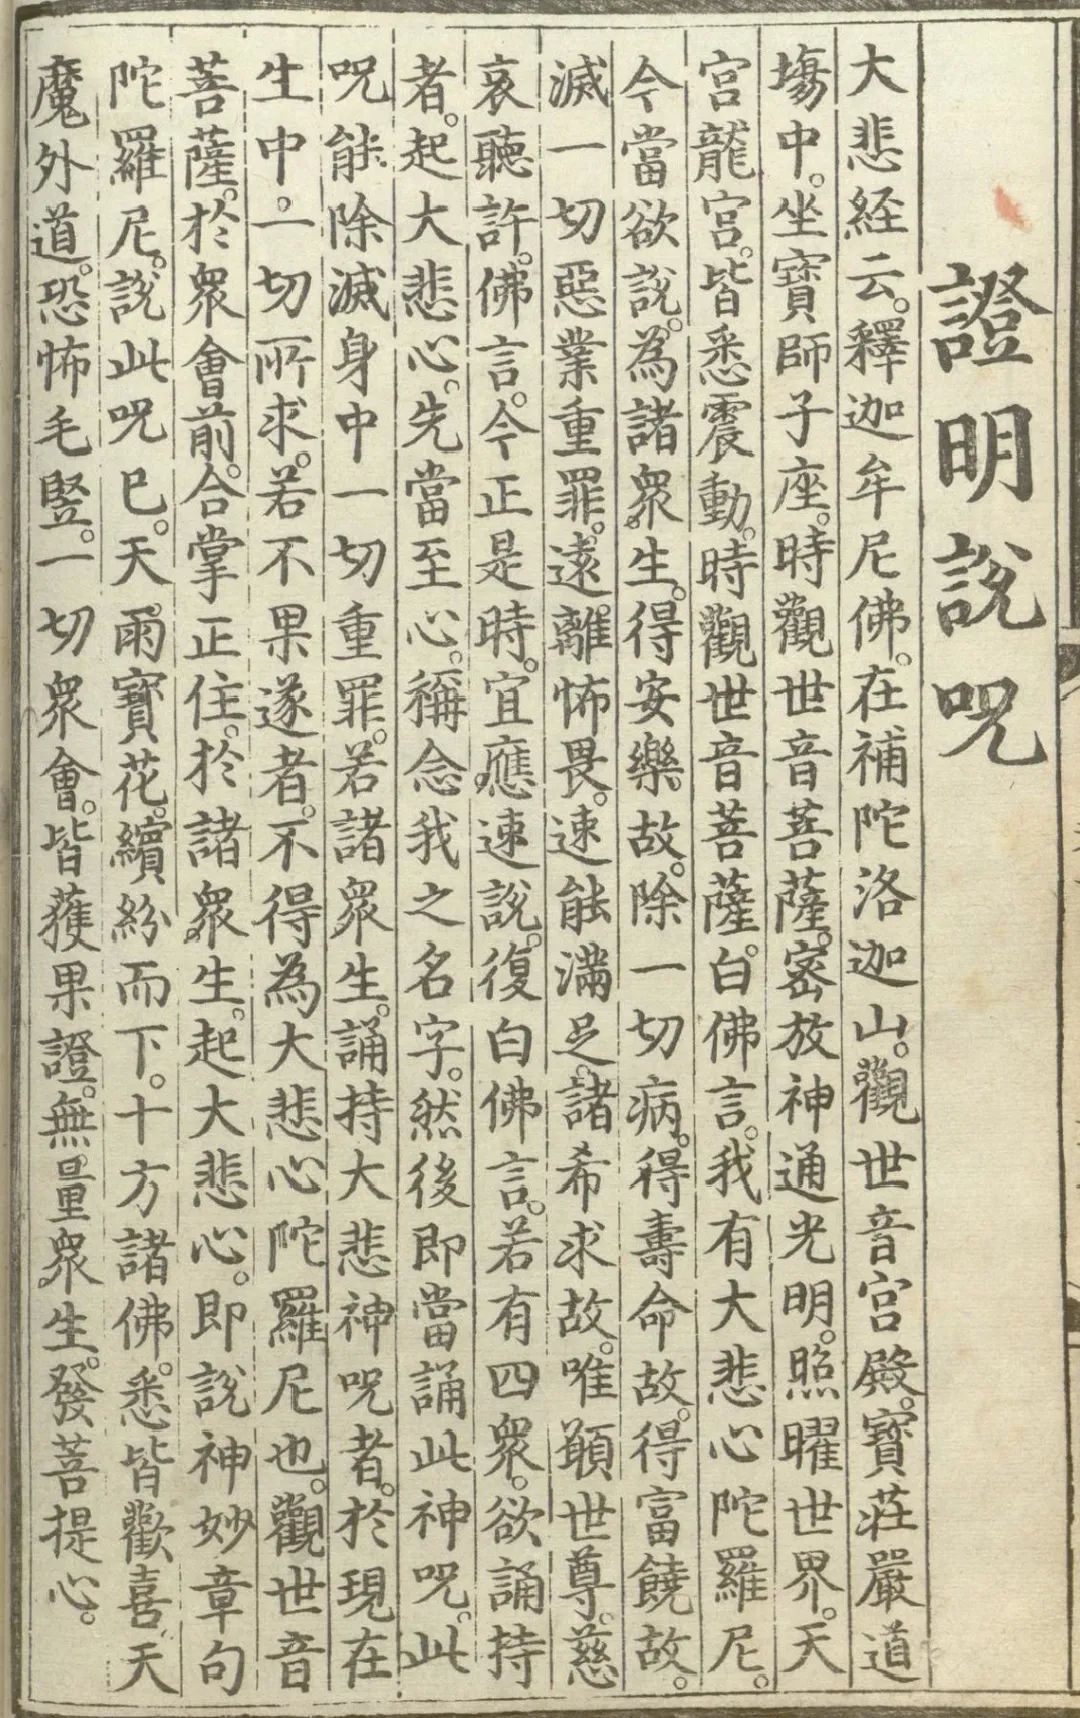 證明說呪
大悲経云。釋迦牟尼佛。在補陀洛迦山。觀世音宮殿。寶莊嚴道
場中。坐寶師子座。時觀世音菩薩。密放神通光明。照曜世界。天
宮龍宮。皆悉震動。時觀世音菩薩。白佛言。我有大悲心陀羅尼。
今當欲說。為諸衆生。得安樂故。除一切病。得壽命故。得富饒故。
滅一切惡業重罪。遠離怖畏。速能滿足。諸希求故。唯願世尊。慈
哀聽許。佛言。今正是時。宜應速說。復白佛言。若有四衆。欲誦持
者。起大悲心。先當至心。稱念我之名字。然後即當誦此神呪。此
呪能除滅身中一切重罪。若諸衆生。誦持大悲神呪者。於現在
生中。一切所求。若不果遂者。不得為大悲心陀羅尼也。觀世音
菩薩。於衆會前。合掌正住。於諸衆生。起大悲心。即說神妙章句
陀羅尼。說此呪已。天雨寶花。繽紛而下。十方諸佛。悉皆歡喜。天
魔外道。恐怖毛竪。一切衆會。皆獲果證。無量衆生。發菩提心。